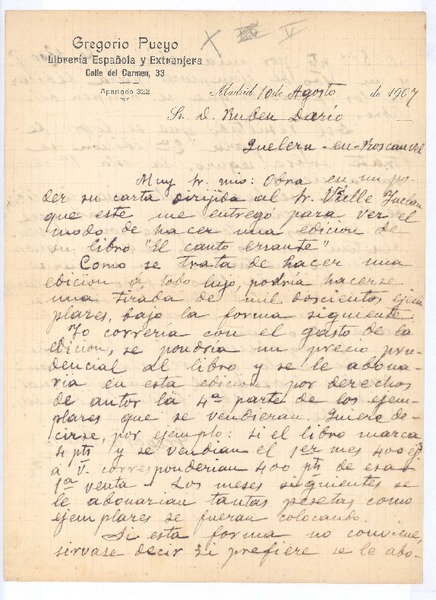 Gregorio Pueyo
Librería Española y Extranjera
Calle del Carmen, 33
Apartado 322
X III V
Madrid 10 de Agosto de 1907
Sr. D. Ruben Darío
en
Muy Sr. mio: Obra en mi po-
der su carta dirijida al Sr.
que este me entregó para ver el
modo de hacer una edicion de
su libro "El canto errante"
Como se trata de hacer una
edicion á todo lujo, podría hacerse
una tirada de mil doscientos ejem
plares, bajo la forma siguiente.
Yo correría con el gasto de la
edicion, se pondría un precio pru-
dencial al libro y se le abona-
ría en esta edicion, por derechos
de autor la 4ª parte de los ejem-
plares que se vendieran. Quiere de-
cirse, por ejemplo: si el libro marca
4 pts y se vendian el 1er mes 400 ejs
á V. corresponderian 400 pts de esa
1ª venta - Los meses siguientes se
le abonarian tantas pesetas como
ejemplares se fueran colocando.
Si esta forma no conviene,
sirvase decir si prefiere se le abo-